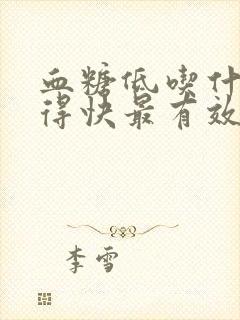 血糖低喫什
得快最有效
李雪